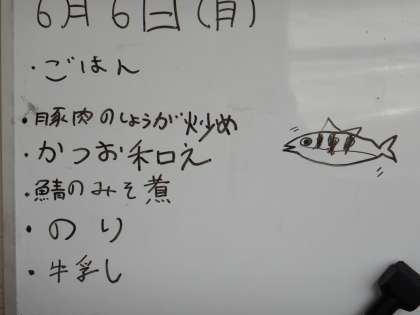 6月6日(月)
・ごはん
・豚肉のしょうが炒め
・かつお和え
・鯖のみそ煮
・のり
・牛乳し